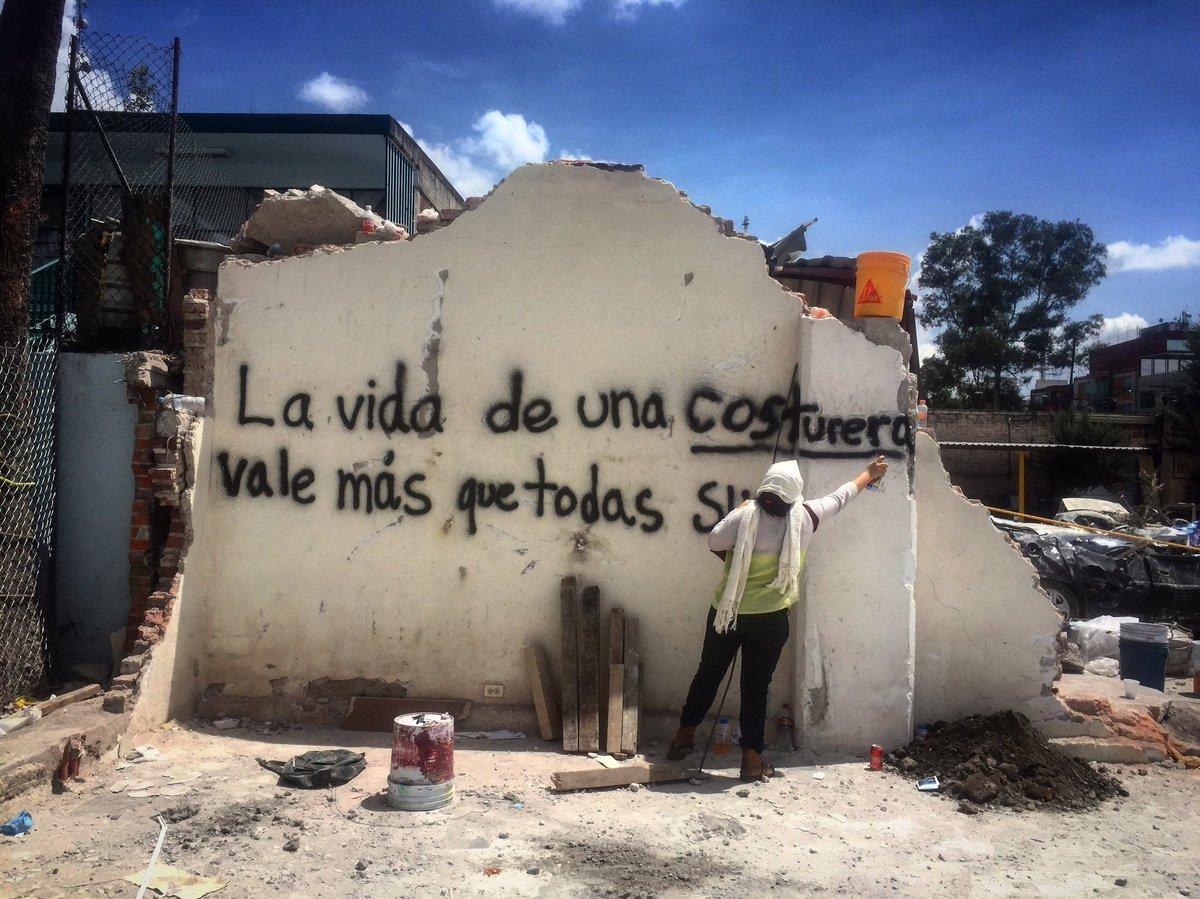 La vida de una costurera
vale más que todas su